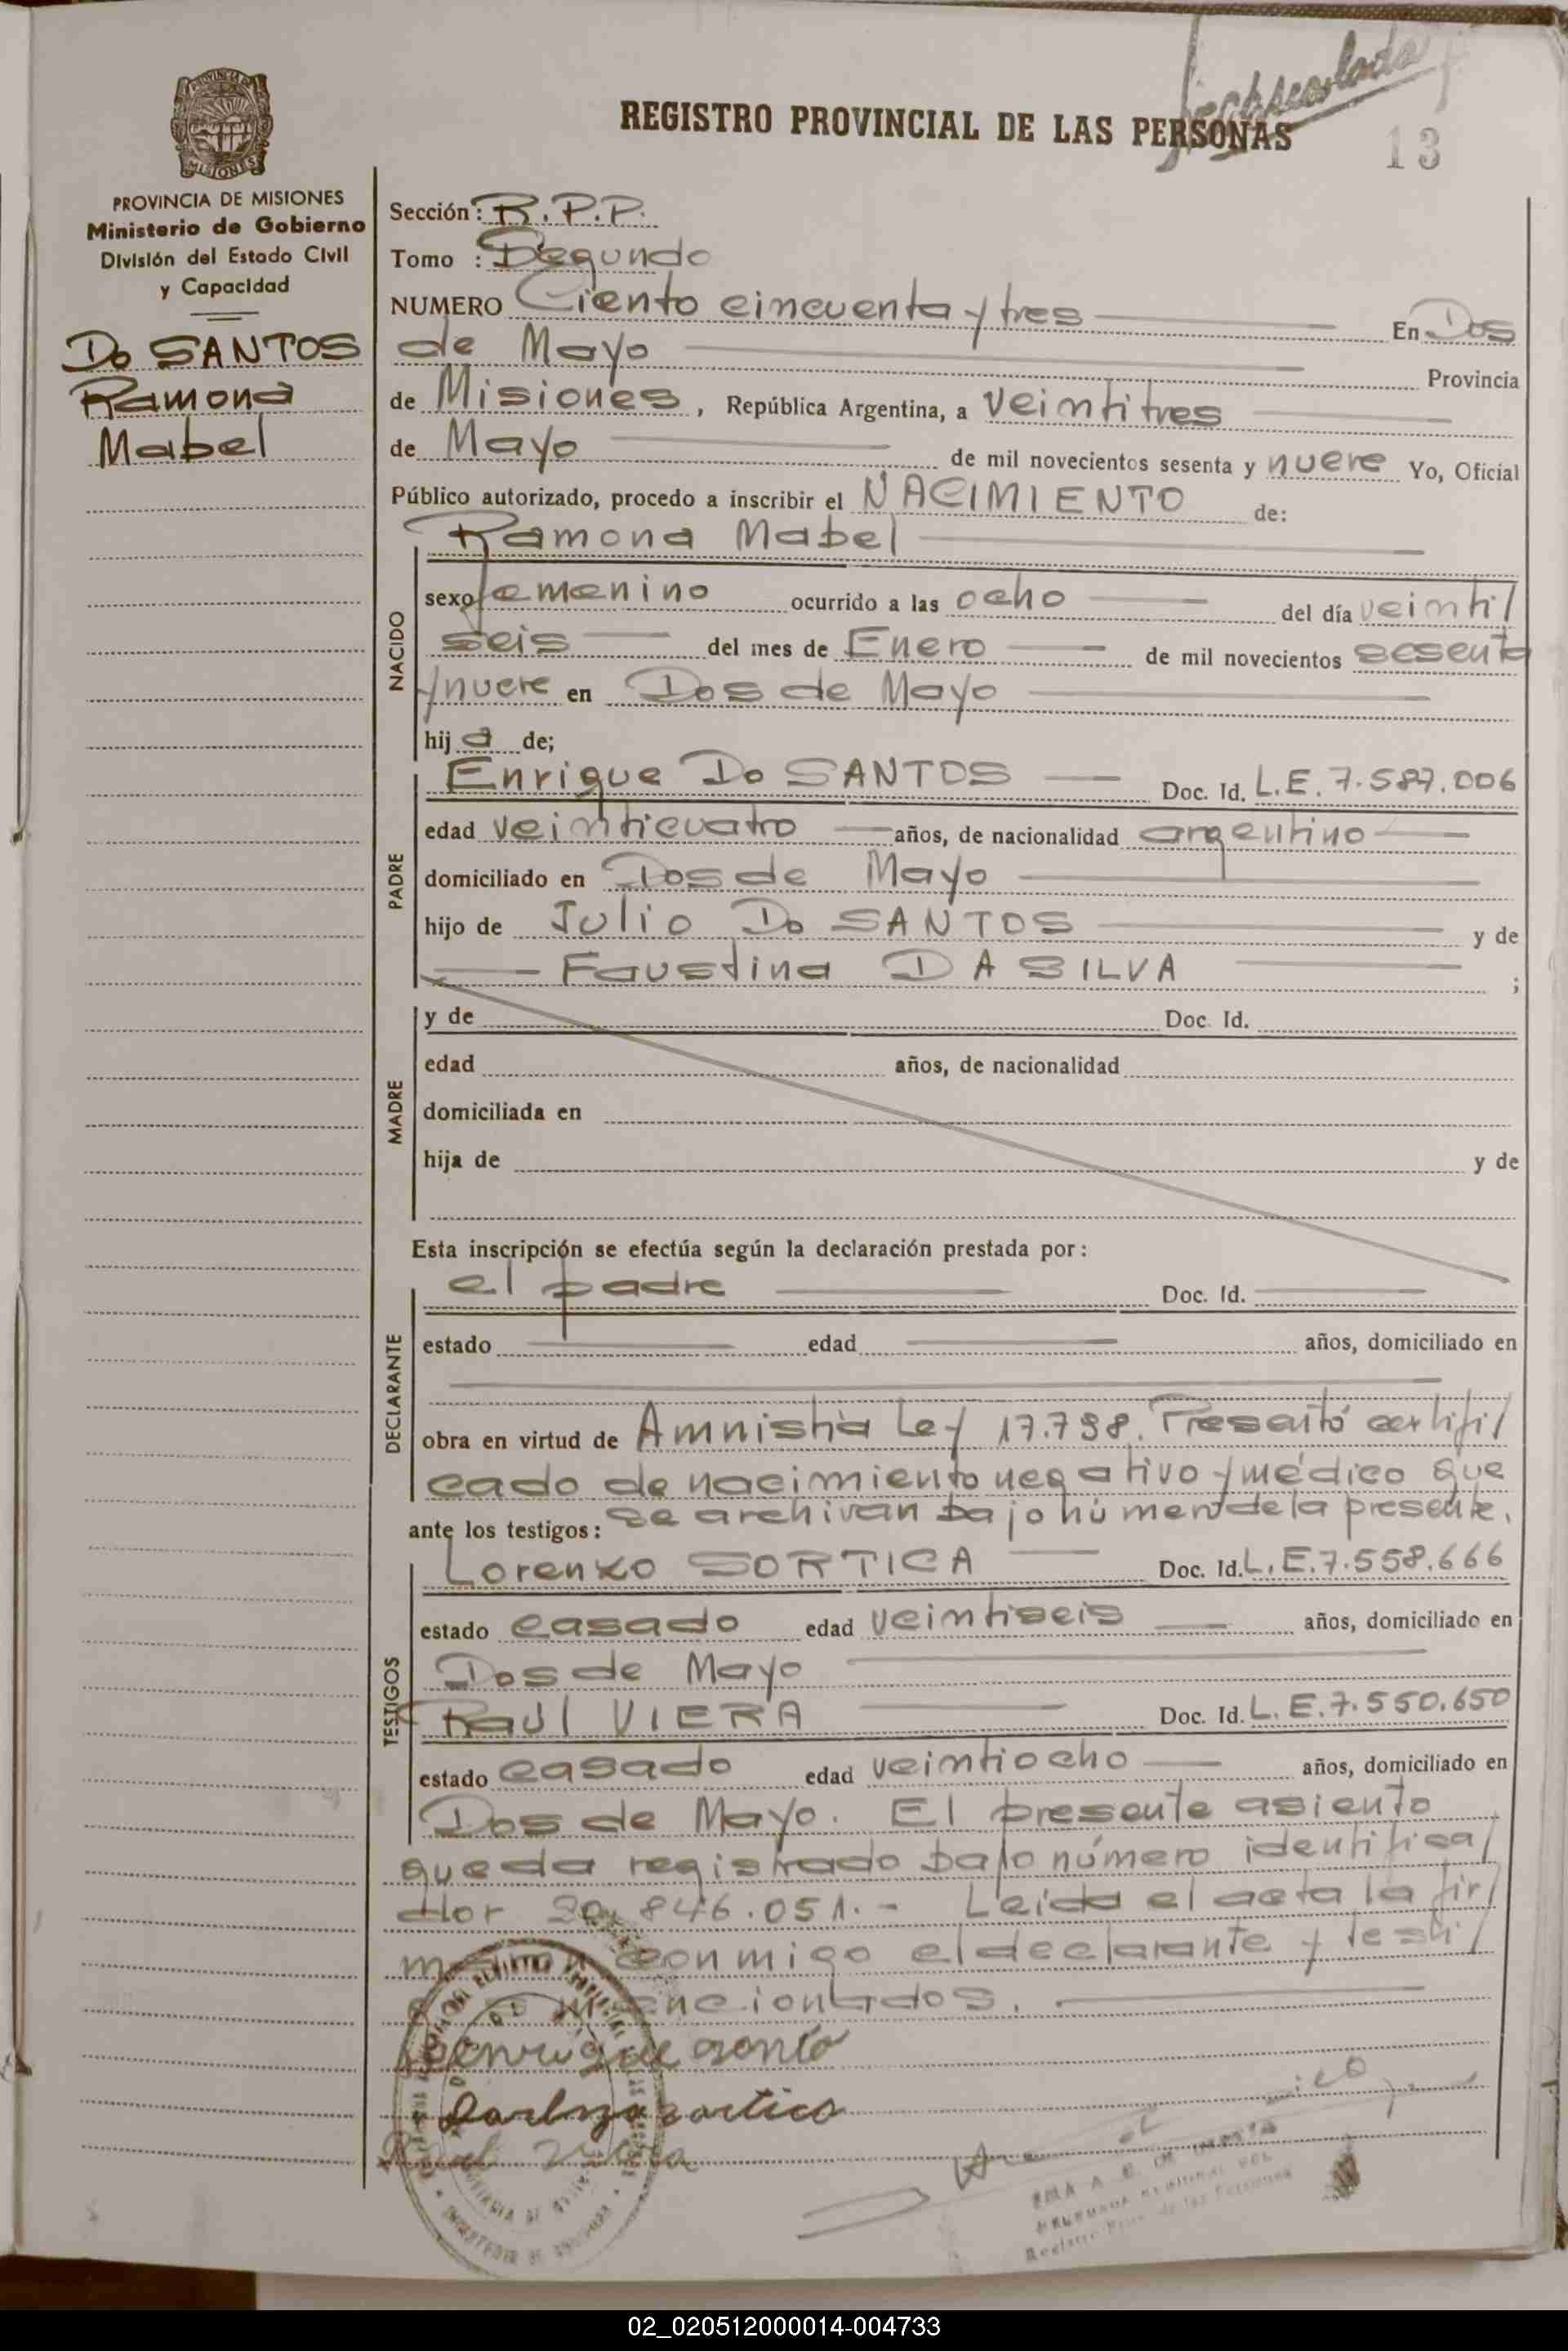 REGISTRO PROVINCIAL DE LAS PERSONAS
13
PROVINCIA DE MISIONES
Ministerio de Gobierno
División del Estado Civil
y Capacidad
Do SANTOS
Ramona
Mabel
Sección: R.P.P.
Tomo : Segundo
NUMERO Ciento cincuenta y tres En Dos
de Mayo Provincia
de Misiones, República Argentina, a veintitres
de Mayo de mil novecientos sesenta y nueve Yo, Oficial
Público autorizado, procedo a inscribir el NACIMIENTO de:
Ramona Mabel
NACIDO
sexo femenino ocurrido a las ocho del día veinti/
seis del mes de Enero de mil novecientos sesenta
y nueve en Dos de Mayo
hij a de;
PADRE
Enrique Do SANTOS Doc. Id. L.E. 7.587.006
edad veinticuatro años, de nacionalidad argentino
domiciliado en Dos de Mayo
hijo de Julio Do SANTOS y de
Faustina DA SILVA ;
MADRE
y de Doc. Id.
edad años, de nacionalidad
domiciliada en
hija de y de
Esta inscripción se efectúa según la declaración prestada por:
DECLARANTE
el padre Doc. Id.
estado edad años, domiciliado en
obra en virtud de Amnistia Ley 17.798. Presentó certifi/
cado de nacimiento negativo y médico que
se archivan bajo número de la presente.
ante los testigos:
TESTIGOS
Lorenzo SORTICA Doc. Id. L.E. 7.558.666
estado casado edad veintiseis años, domiciliado en
Dos de Mayo
Raúl VIERA Doc. Id. L.E. 7.550.650
estado casado edad veintiocho años, domiciliado en
Dos de Mayo. El presente asiento
queda registrado bajo número identifica/
dor 20.846.051.- Leida el acta la fir/
man conmigo el declarante y testi/
mencionados.
Raul Viera
02_020512000014-004733